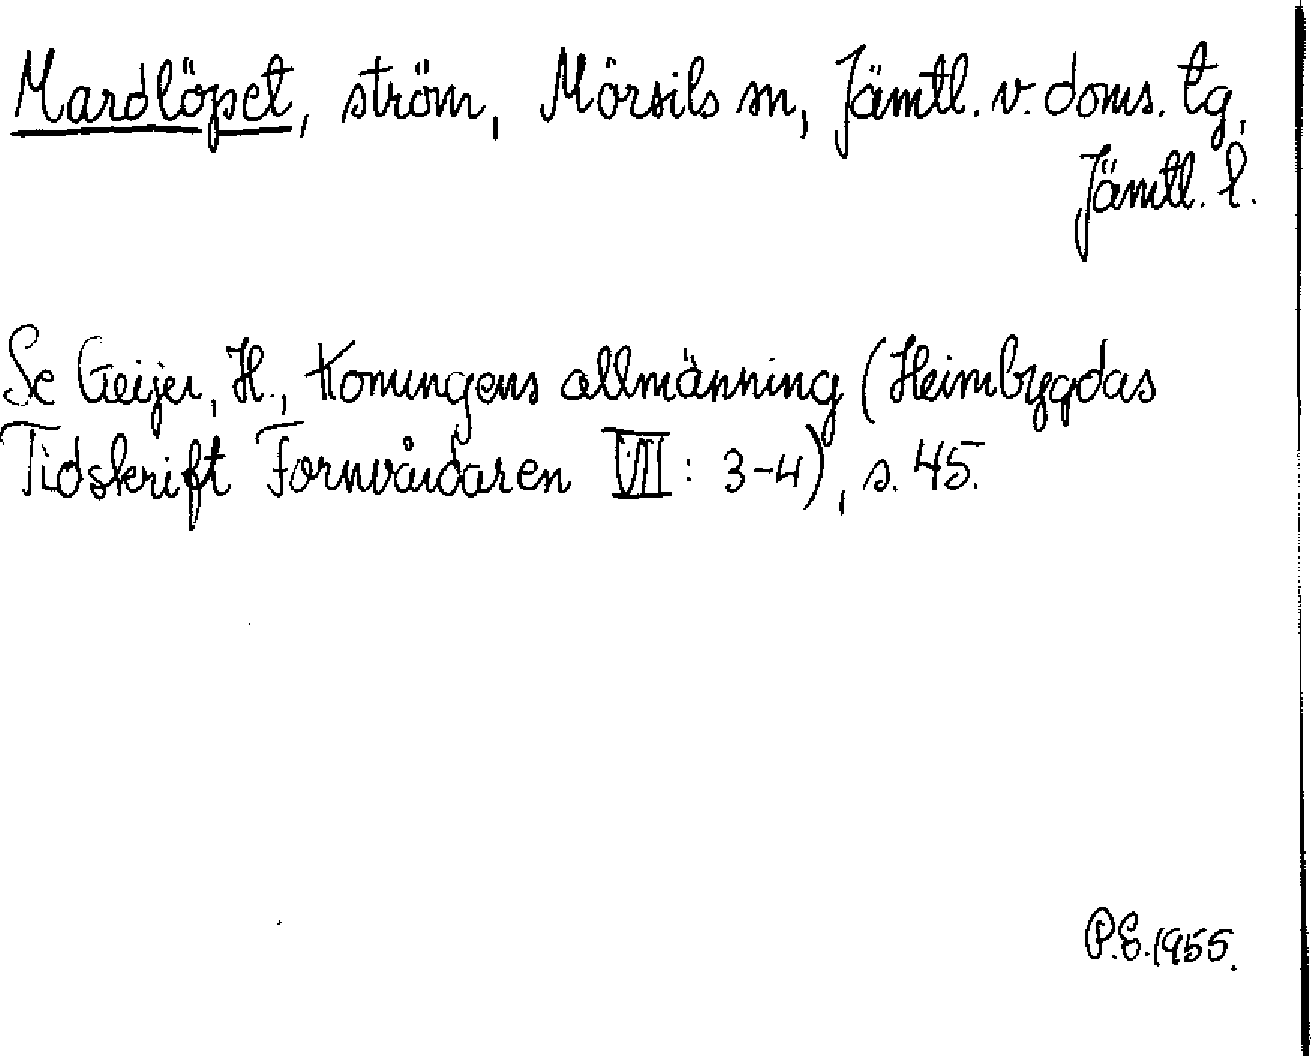 Mardlöpet, ström, Mörsils sn, Jämtl. v. doms. tg,
Jämtl. l.
Se Geijer, H., Konungens allmänning (Heimbygdas
Tidskrift Fornvårdaren VII: 3-4), s. 45.
P.E. 1955.